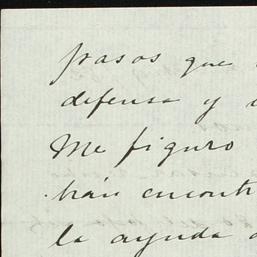 pasos que
defensa y
Me figuro
han encont
la ayuda